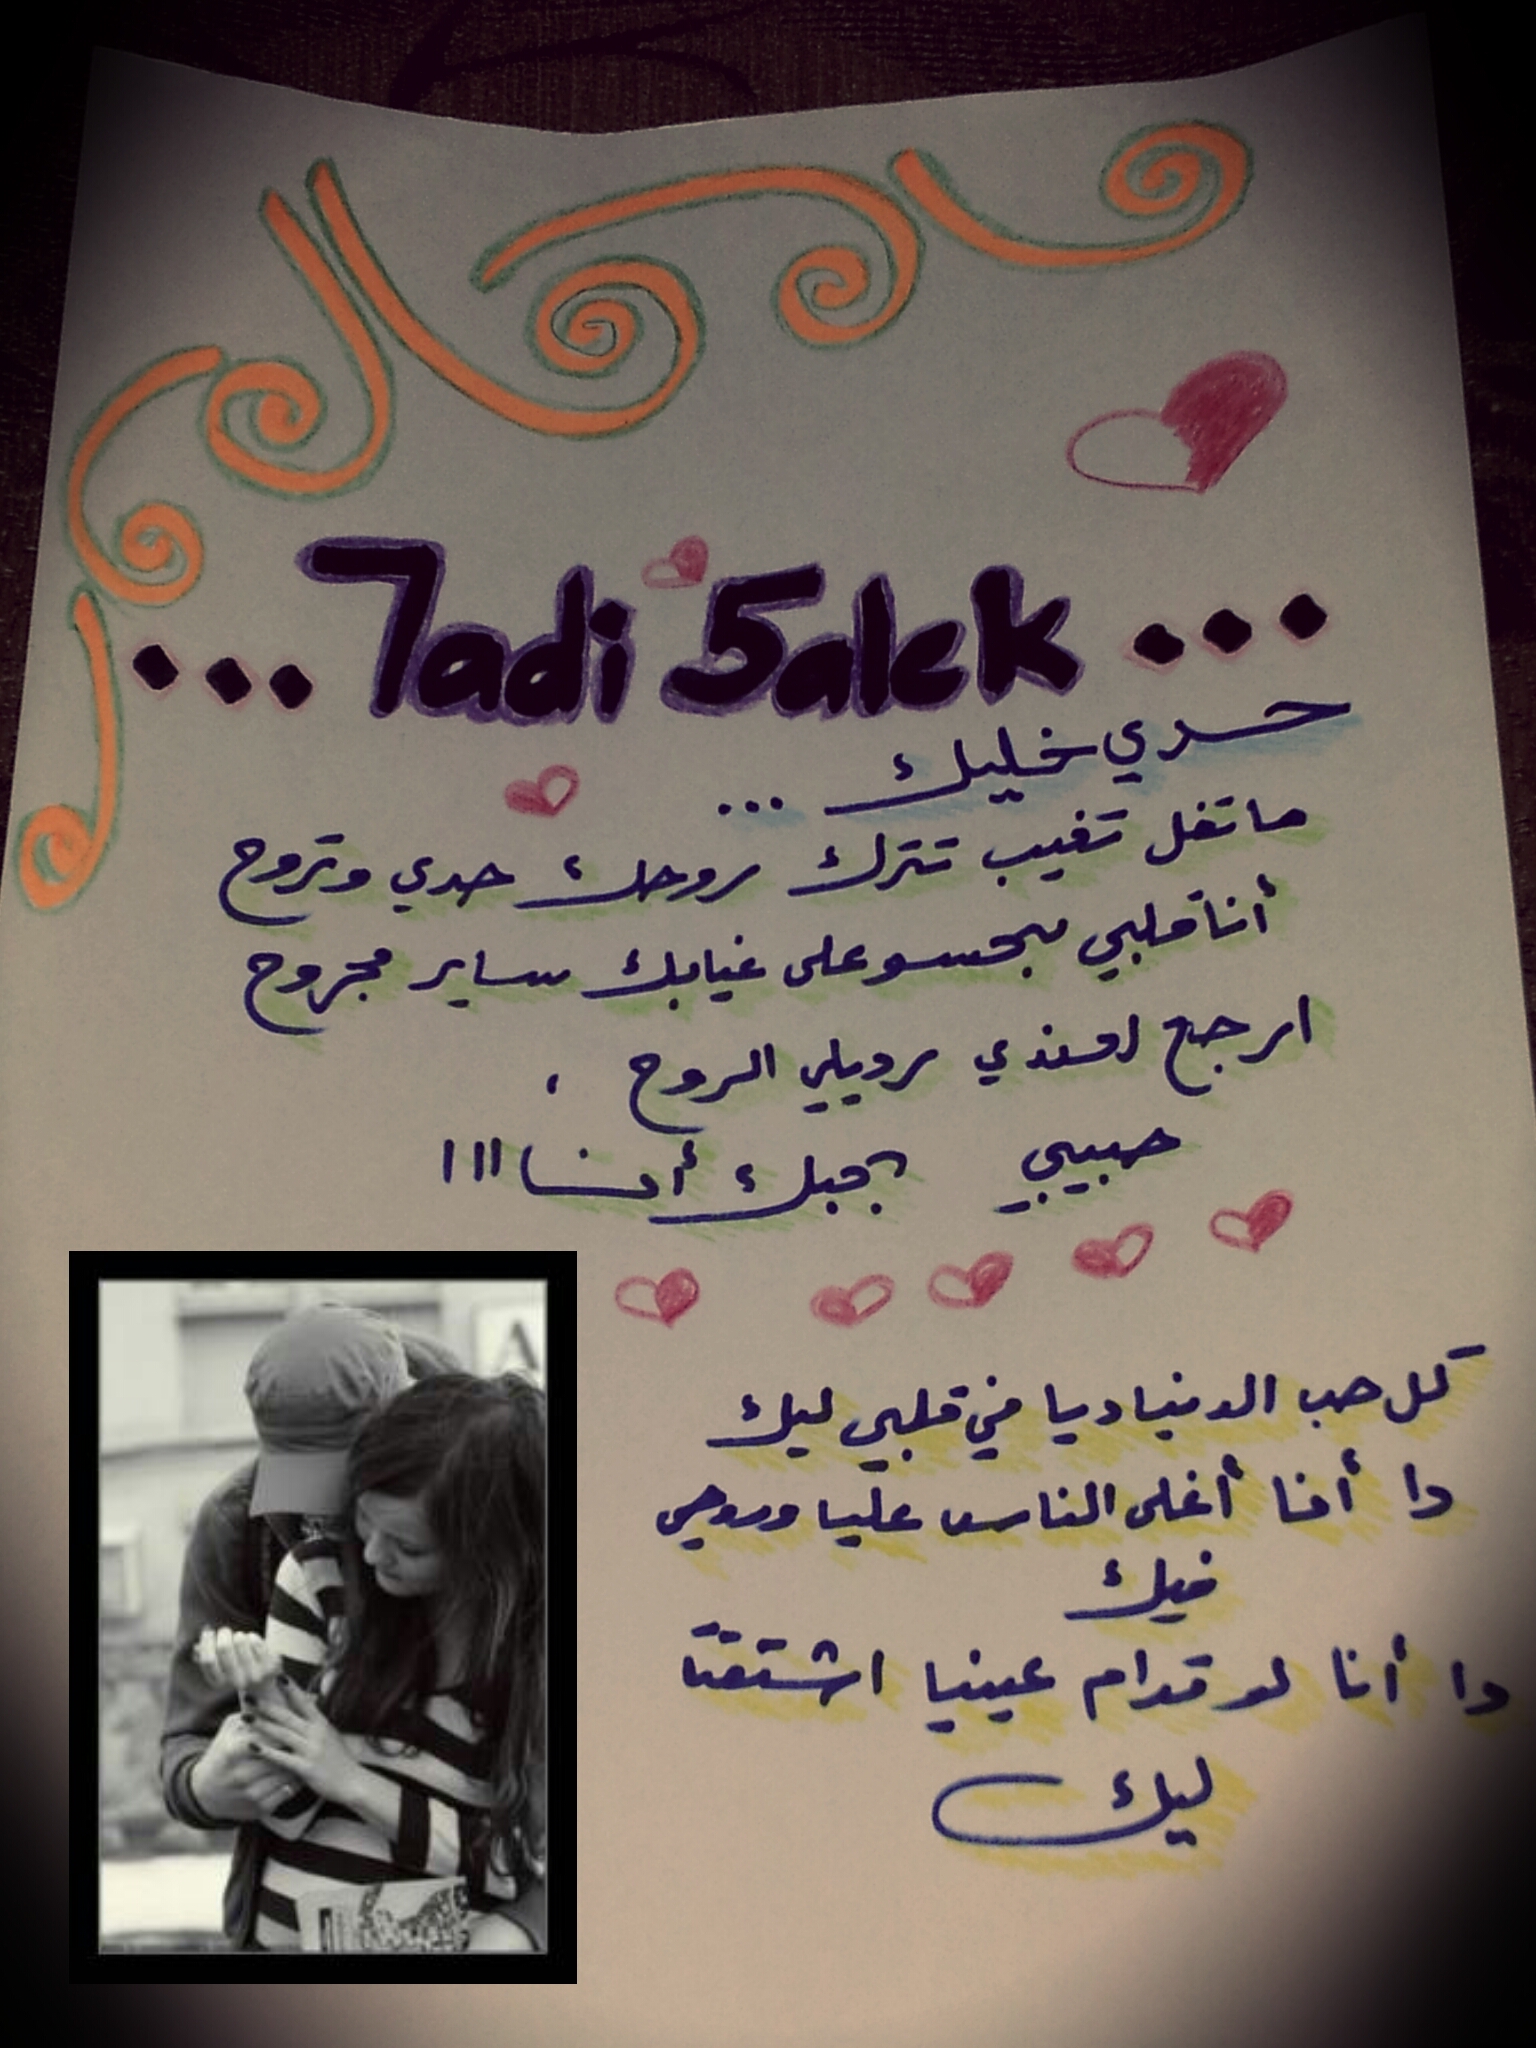 ... 7adi 5alek ...
حدي خليك ...
ما تفل تغيب تترك روحك حدي وتروح
أنا قلبي بحسو على غيابك ساير مجروح
ارجع لعندي رديلي الروح
حبيبي بحبك أنا!!!
كل حب الدنيا ديا في قلبي ليك
دا أنا أغلى الناس عليا وروحي
فيك
دا أنا لو قدام عينيا اشتقت
ليك
A